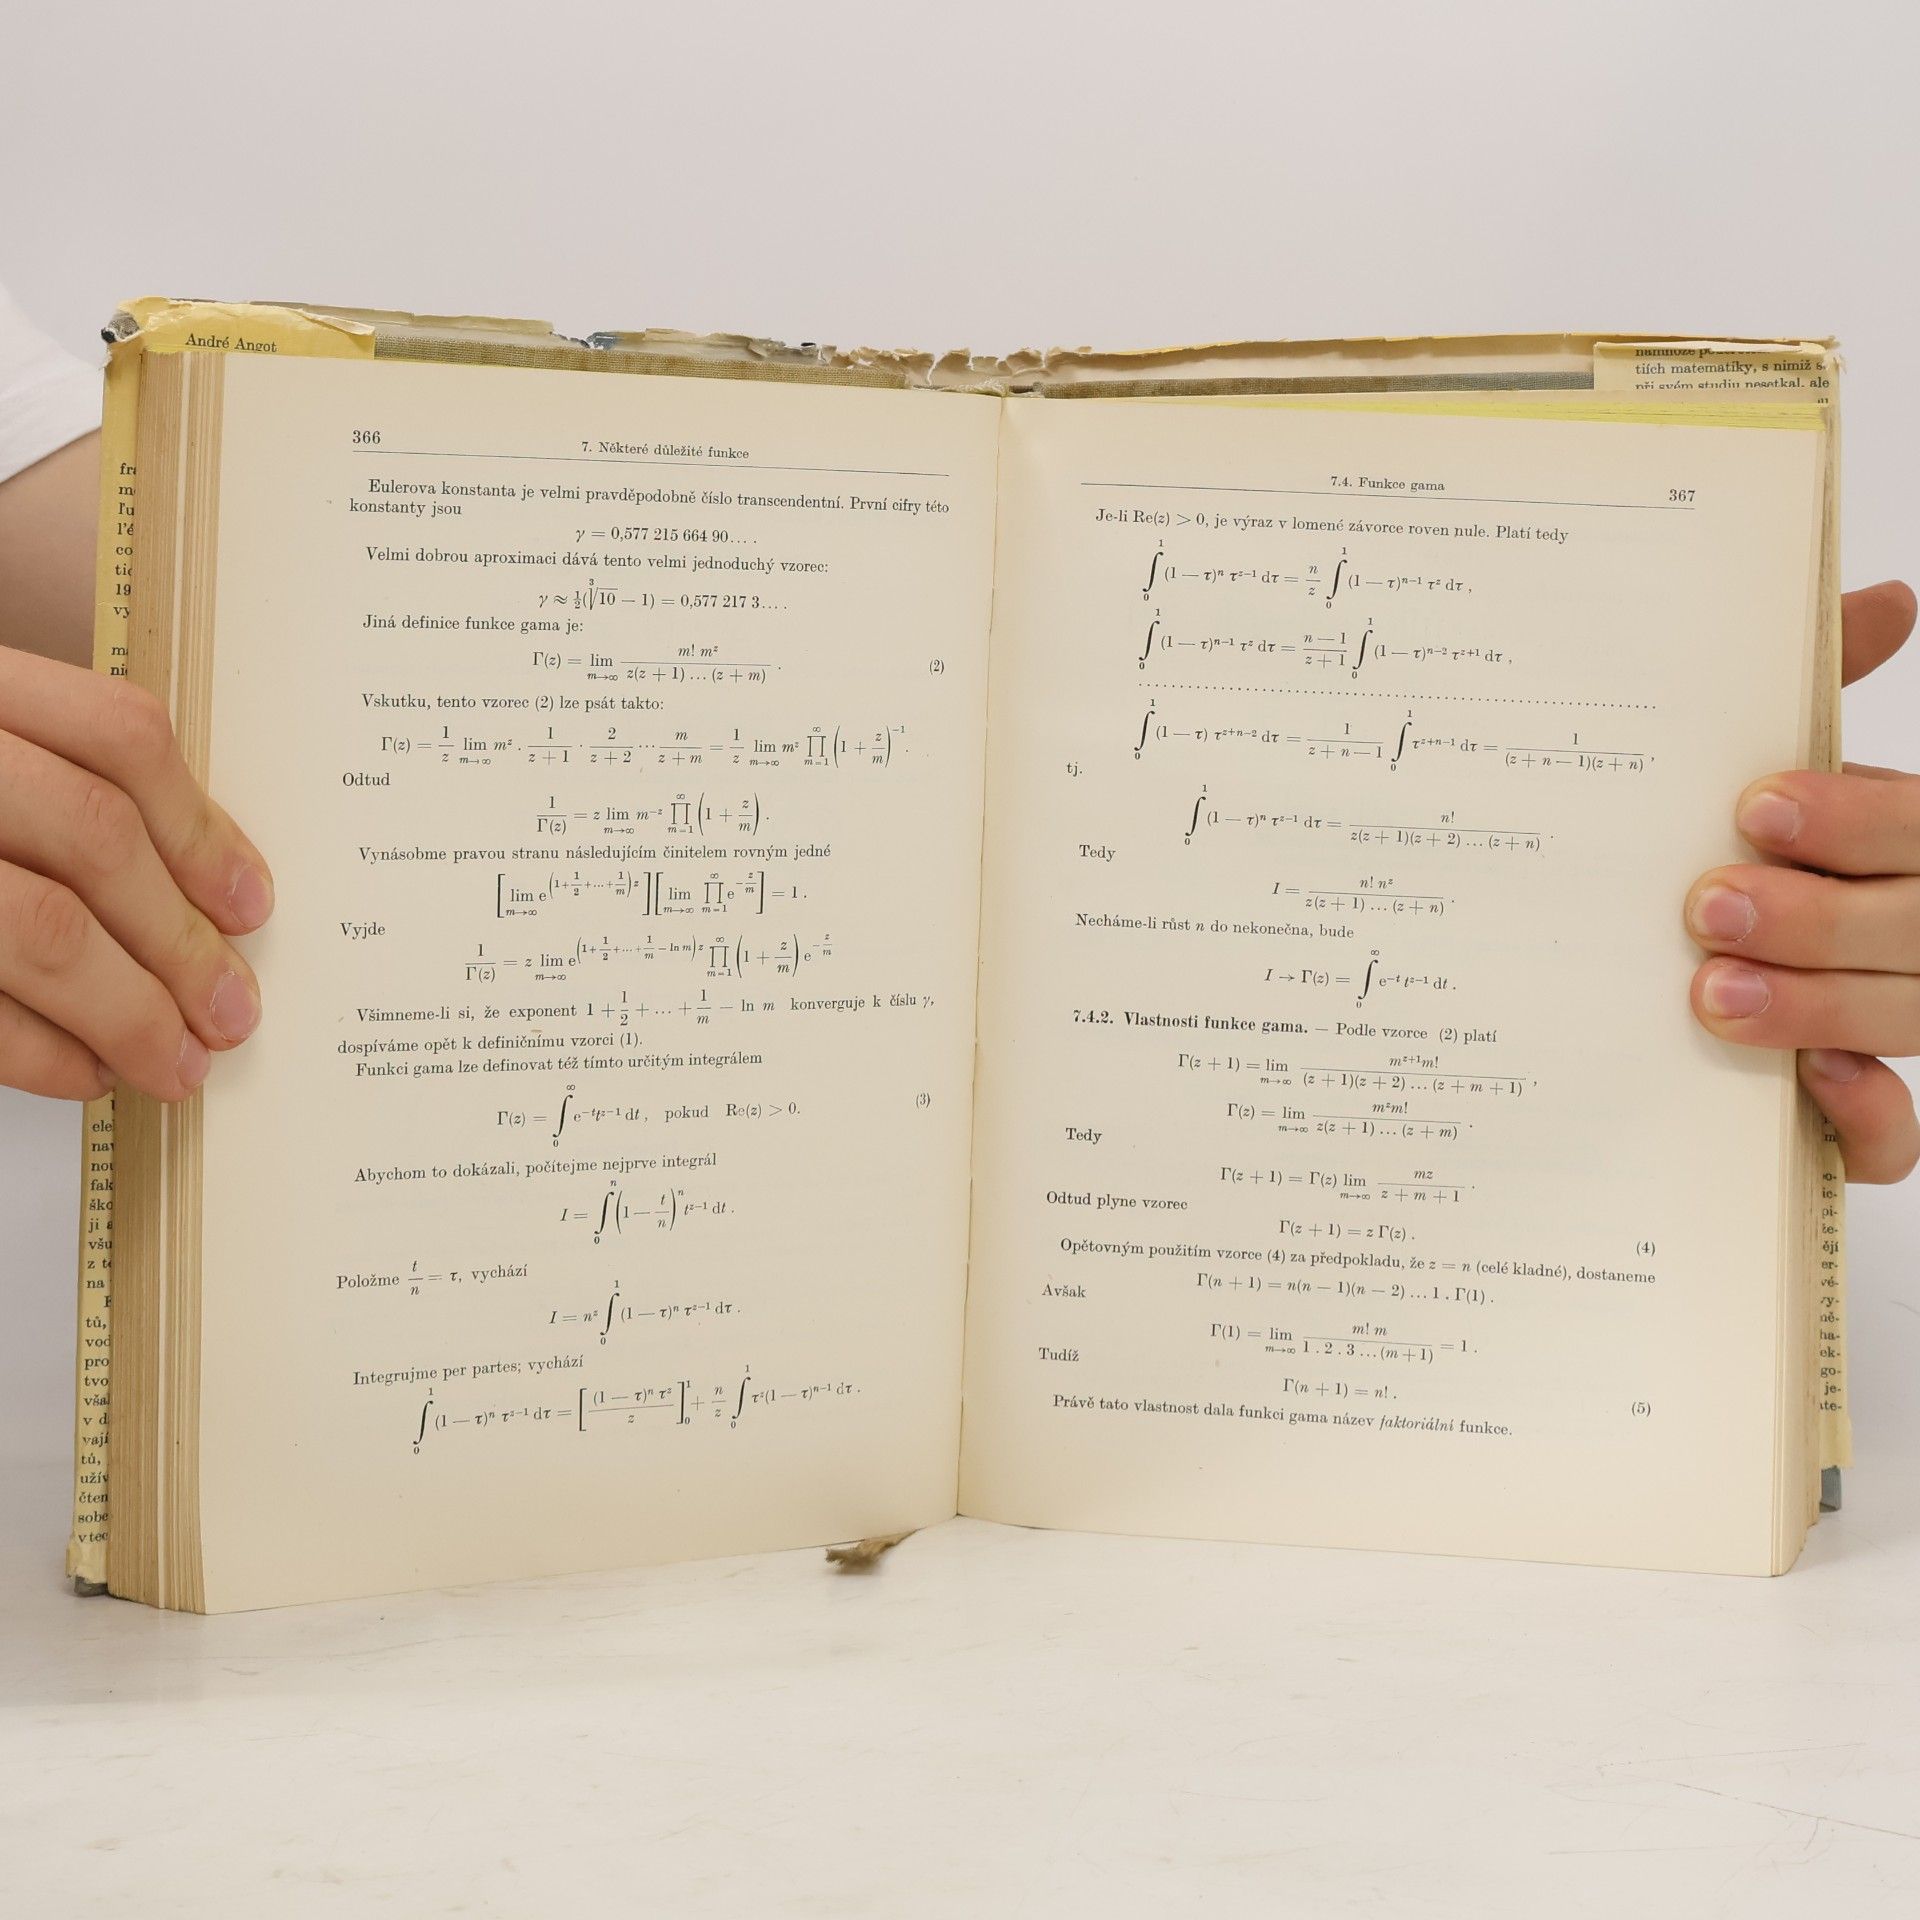 André Angot
366
7. Některé důležité funkce
Eulerova konstanta je velmi pravděpodobně číslo transcendentní. První cifry této
konstanty jsou
γ = 0,577 215 664 90... .
Velmi dobrou aproximaci dává tento velmi jednoduchý vzorec:
γ ≈ ½(∛10 − 1) = 0,577 217 3... .
Jiná definice funkce gama je:
Γ(z) = lim_{m→∞} m! m^z / z(z + 1) ... (z + m) . (2)
Vskutku, tento vzorec (2) lze psát takto:
Γ(z) = 1/z lim_{m→∞} m^z . 1/(z + 1) · 2/(z + 2) ··· m/(z + m) = 1/z lim_{m→∞} m^z ∏_{m=1}^{∞} (1 + z/m)^{−1}.
Odtud
1/Γ(z) = z lim_{m→∞} m^{−z} ∏_{m=1}^{∞} (1 + z/m) .
Vynásobme pravou stranu následujícím činitelem rovným jedné
[lim_{m→∞} e^{(1+1/2+...+1/m)z}] [lim_{m→∞} ∏_{m=1}^{∞} e^{−z/m}] = 1 .
Vyjde
1/Γ(z) = z lim_{m→∞} e^{(1+1/2+...+1/m − ln m)z} ∏_{m=1}^{∞} (1 + z/m) e^{−z/m}
Všimneme-li si, že exponent 1 + 1/2 + ... + 1/m − ln m konverguje k číslu γ,
dospíváme opět k definičnímu vzorci (1).
Funkci gama lze definovat též tímto určitým integrálem
Γ(z) = ∫_0^∞ e^{−t}t^{z−1} dt , pokud Re(z) > 0. (3)
Abychom to dokázali, počítejme nejprve integrál
I = ∫_0^n (1 − t/n)^n t^{z−1} dt .
Položme t/n = τ, vychází
I = n^z ∫_0^1 (1 − τ)^n τ^{z−1} dτ .
Integrujme per partes; vychází
∫_0^1 (1 − τ)^n τ^{z−1} dτ = [(1 − τ)^n τ^z / z]_0^1 + n/z ∫_0^1 τ^z(1 − τ)^{n−1} dτ .
7.4. Funkce gama
367
Je-li Re(z) > 0, je výraz v lomené závorce roven nule. Platí tedy
∫_0^1 (1 − τ)^n τ^{z−1} dτ = n/z ∫_0^1 (1 − τ)^{n−1} τ^z dτ ,
∫_0^1 (1 − τ)^{n−1} τ^z dτ = (n − 1)/(z + 1) ∫_0^1 (1 − τ)^{n−2} τ^{z+1} dτ ,
..........................................................
∫_0^1 (1 − τ) τ^{z+n−2} dτ = 1/(z + n − 1) ∫_0^1 τ^{z+n−1} dτ = 1/(z + n − 1)(z + n) ,
tj.
∫_0^1 (1 − τ)^n τ^{z−1} dτ = n! / z(z + 1)(z + 2) ... (z + n) .
Tedy
I = n! n^z / z(z + 1) ... (z + n) .
Necháme-li růst n do nekonečna, bude
I → Γ(z) = ∫_0^∞ e^{−t} t^{z−1} dt .
7.4.2. Vlastnosti funkce gama. — Podle vzorce (2) platí
Γ(z + 1) = lim_{m→∞} m^{z+1}m! / (z + 1)(z + 2) ... (z + m + 1) ,
Γ(z) = lim_{m→∞} m^z m! / z(z + 1) ... (z + m) .
Tedy
Γ(z + 1) = Γ(z) lim_{m→∞} mz / z + m + 1 .
Odtud plyne vzorec
Γ(z + 1) = z Γ(z) . (4)
Opětovným použitím vzorce (4) za předpokladu, že z = n (celé kladné), dostaneme
Γ(n + 1) = n(n − 1)(n − 2) ... 1 . Γ(1) .
Avšak
Γ(1) = lim_{m→∞} m! m / 1 . 2 . 3 ... (m + 1) = 1 .
Tudíž
Γ(n + 1) = n! . (5)
Právě tato vlastnost dala funkci gama název faktoriální funkce.
tiích matematiky, s nimiž s
při svém studiu nesetkal, ale